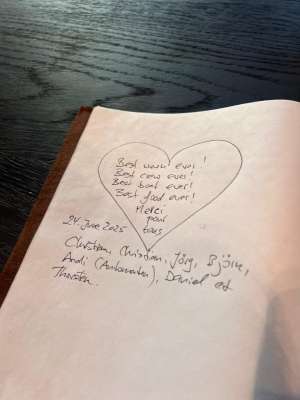 Best week ever!
Best crew ever!
Best boat ever!
Best food ever!
Merci
pour
tous
24 June 2025
Christian, Christian, Jörg, Björn,
Andi (Automaten), Daniel et
Thorsten.